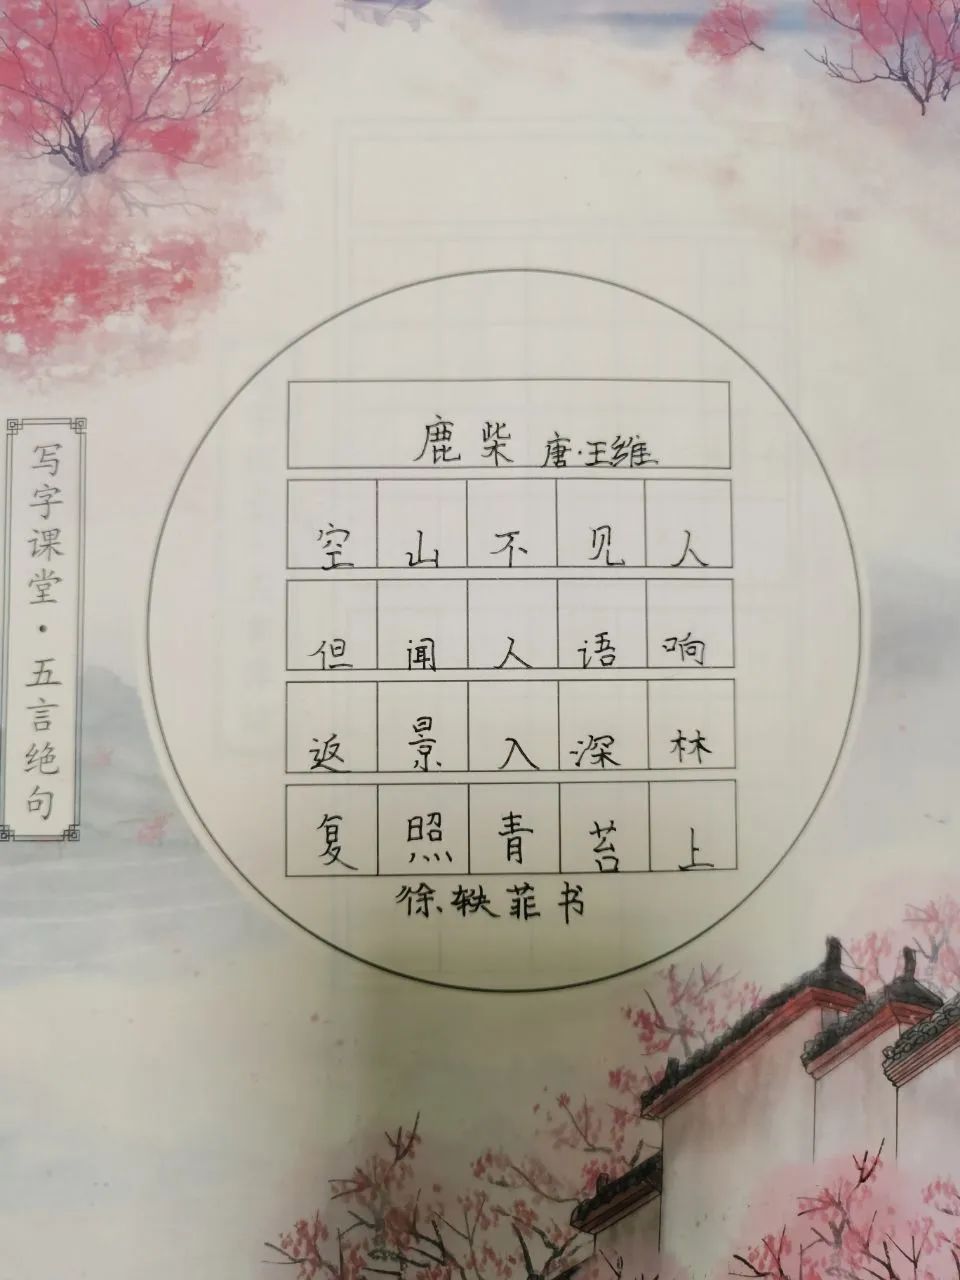 写字课堂·五言绝句
鹿柴 唐·王维
空山不见人
但闻人语响
返景入深林
复照青苔上
徐轶菲书